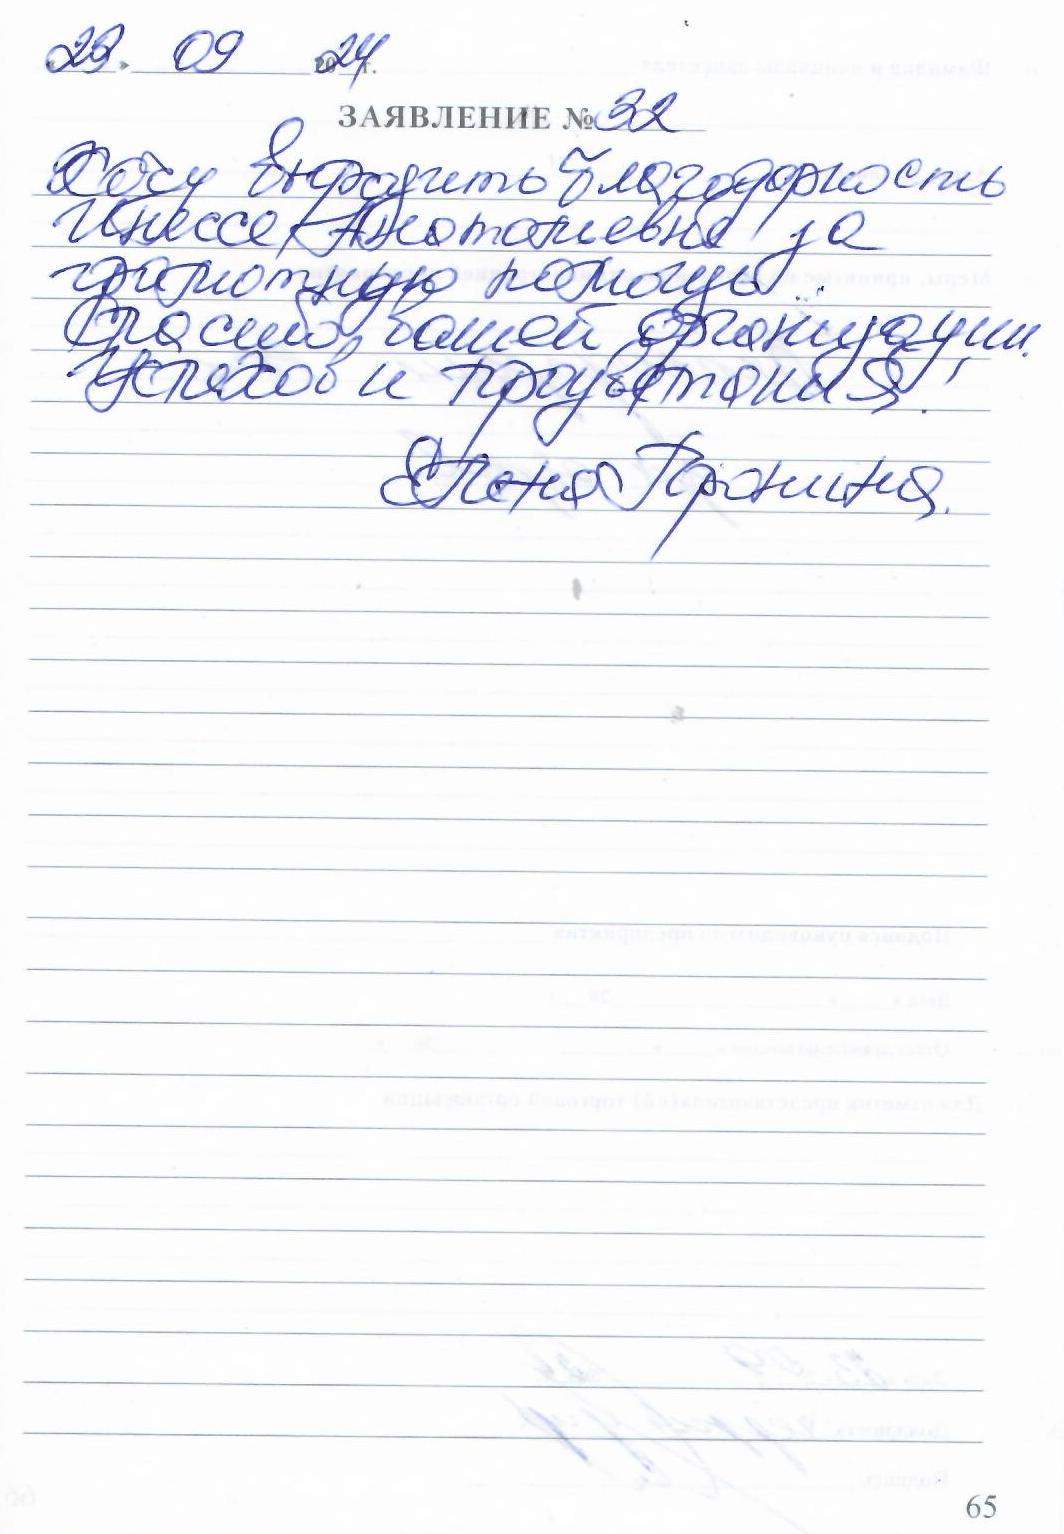 «23» 09 2024 г.
ЗАЯВЛЕНИЕ № 32
Хочу выразить благодарность
Инессе Анатольевне за
грамотную помощь.
Спасибо вашей организации.
Успехов и процветания!
Елена Пронина.
65